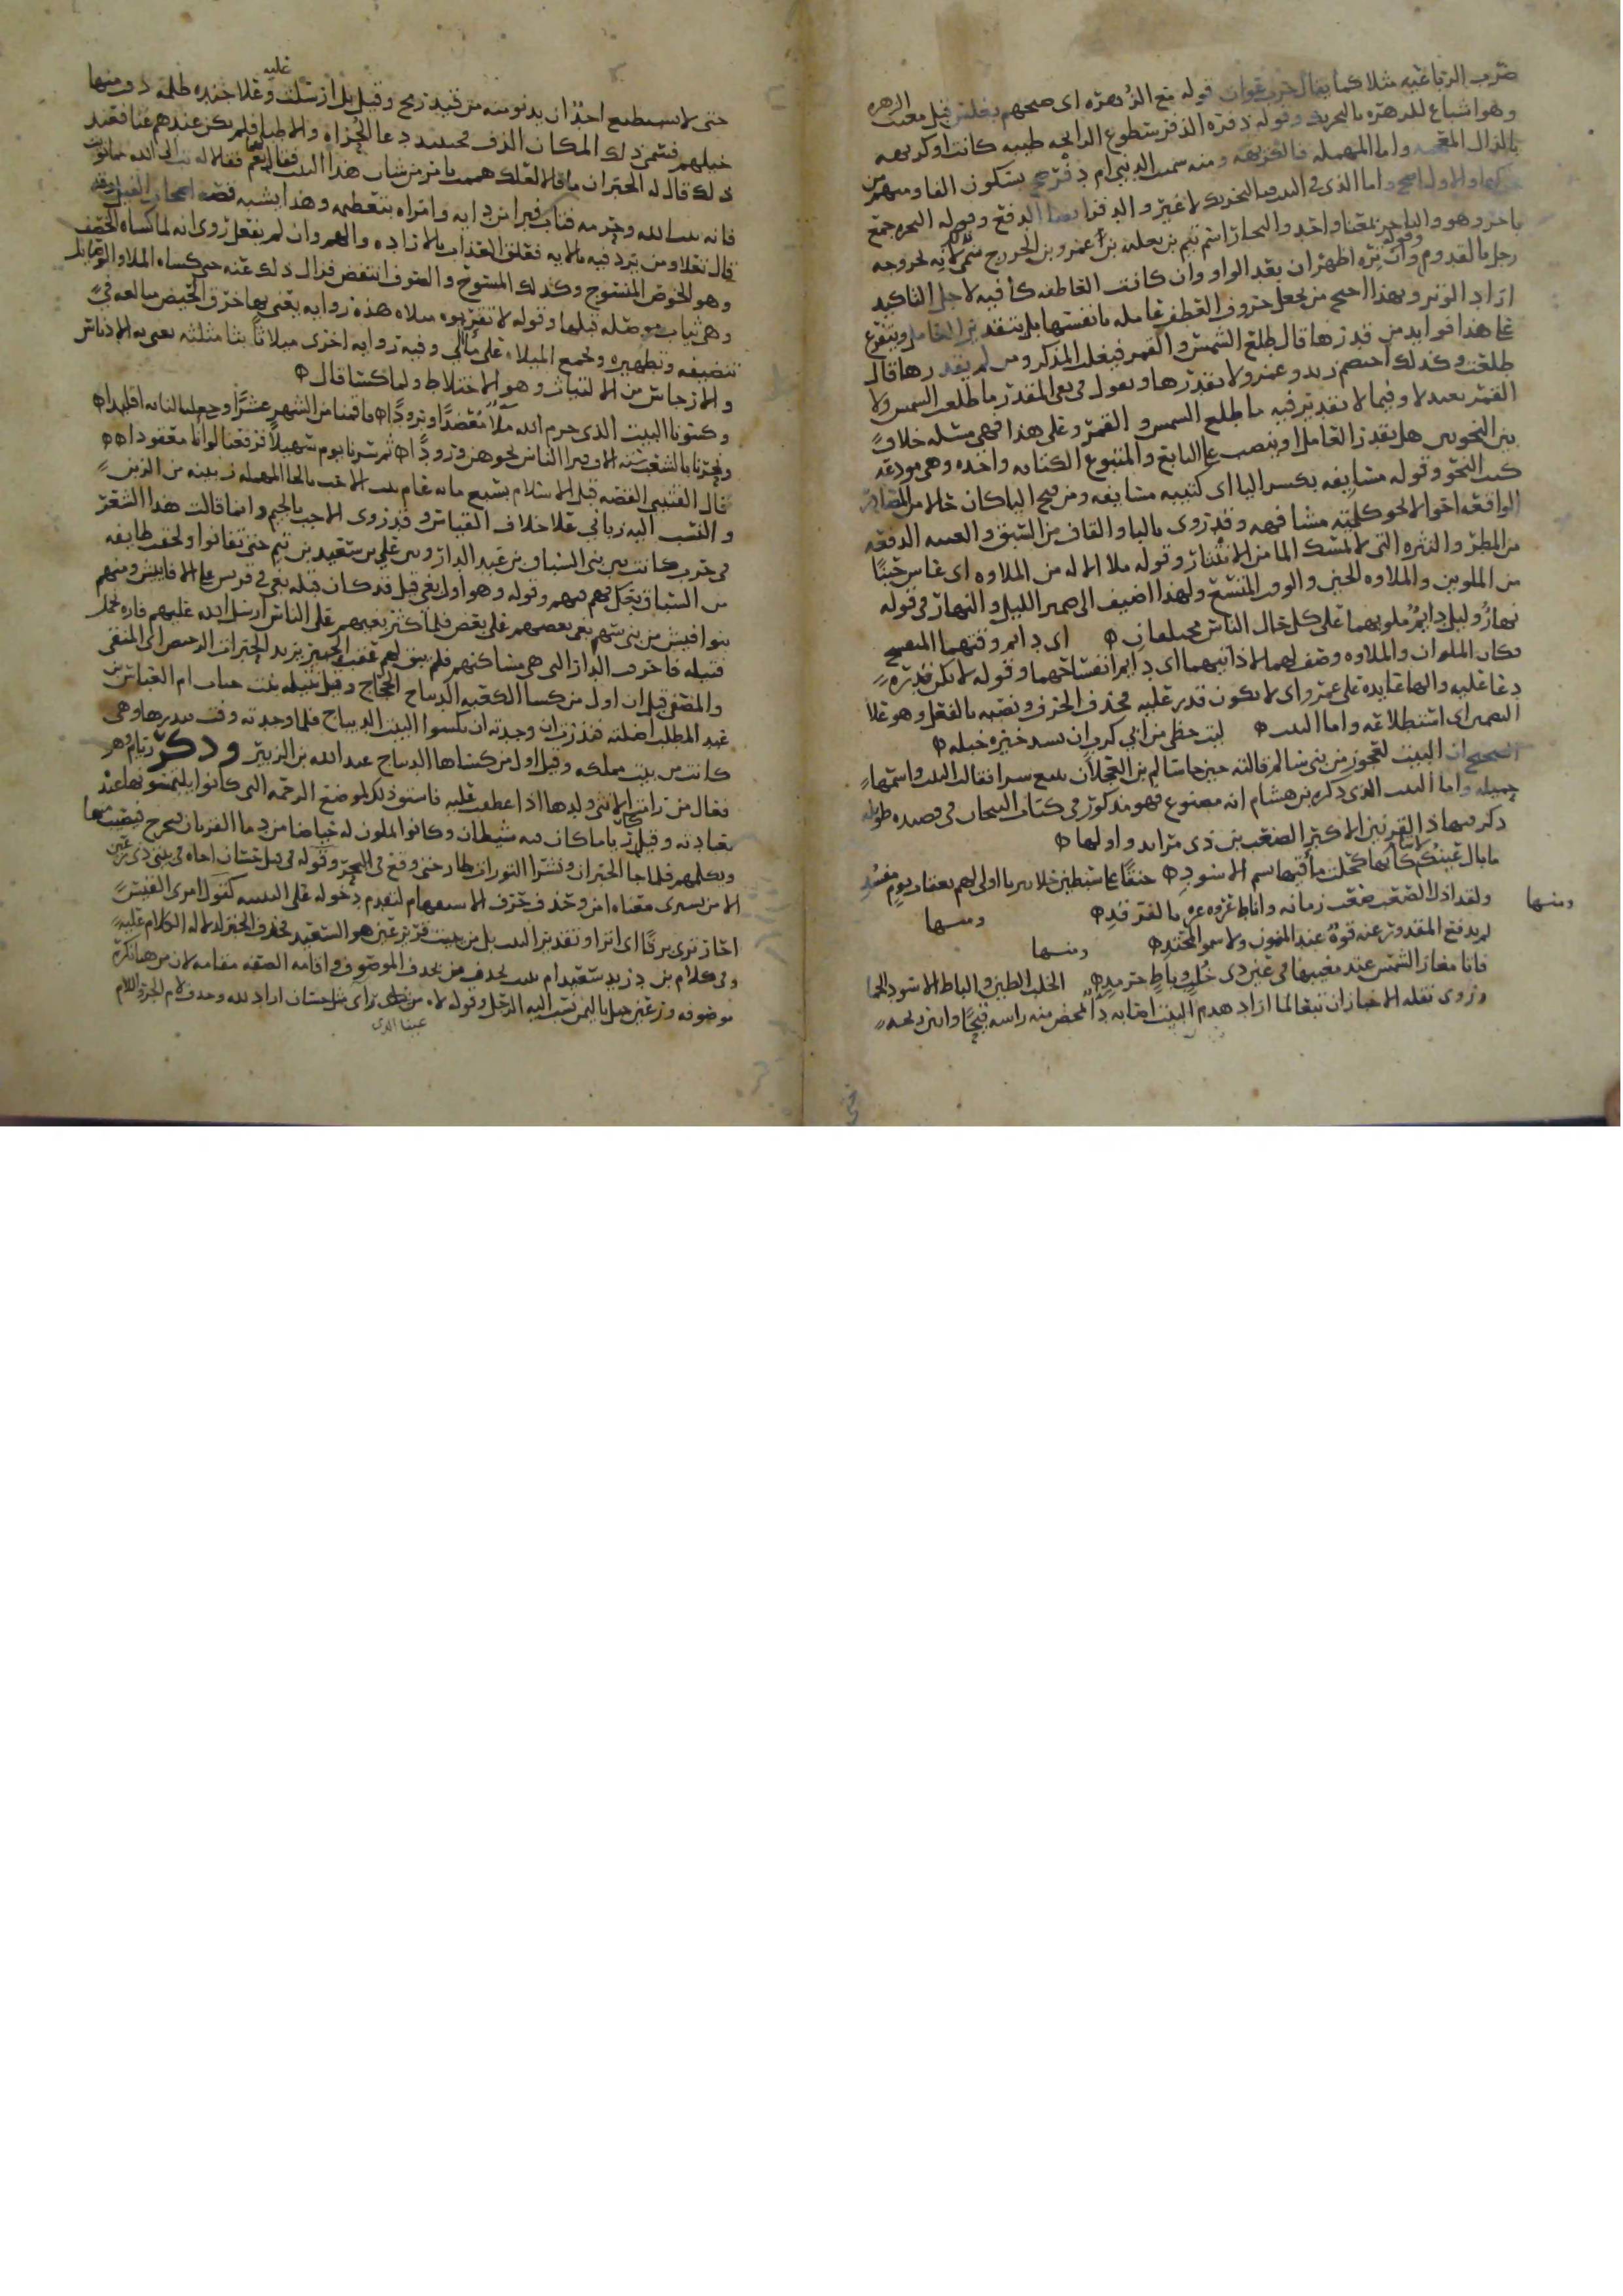 ضرب الرباعيه مثلا كما يقال حرب عوان قوله مع الزهره اى صبحهم بغلس قبل مغيب الزهره
وهو اشباع للزهره بالتحريك وقوله ذفره الذفر سطوع الرائحه طيبه كانت او كريهه
بالذال المعجمه واما المهمله فالكريهه ومنه سميت الدنيا ام دفر بسكون الفا ومنهم من
حركها والاول اصح واما الذى فى البيت فبالتحريك لا غير والدفر ايضا الدفع وقوله النجره جمع
ناجر وهو والناجر بمعنا واحد والنجار اسم تيم بن ثعلبه بن عمرو بن الخزرج سمى لانه نجر وجه
رجل بالقدوم وقوله وان تره اظهر ان بعد الواو وان كانت العاطفه كافيه لاجل التاكيد
اراد الوتر وبهذا احتج من يجعل حروف العطف عامله بانفسها بل بتقدير العامل ويتفرع
على هذا فوايد من قدرها قال طلع الشمس والقمر فيغلب المذكر ومن لم يقدرها قال
طلعت وكذلك اختصم زيد وعمرو ولا تقدرها وتقول فى نفى المقدر ما طلعت الشمس ولا
القمر بعيد لا وفيما لا تقدير فيه ما طلع الشمس والقمر وعلى هذا فهى مسئله خلاف
بين النحويين هل يقدر العامل او ينصب على التابع والمتبوع الكنايه واحده وهى مودعه
كتب النحو وقوله مسايفه بكسر اليا اى كتيبه مسايفه ومن فتح اليا كان حالا من المصادر
الواقعه احوالا نحو كلمته مشافهه وقد تروى بالبا والقاف من السبق والغبيه الدفعه
من المطر والنثره التى لا تمسك الما من الانتثار وقوله ملا الاله من الملاوه اى عاش حينا
من الملوين والملاوه الحين والوقت المتسع ولهذا اضيف الى ضمير الليل والنهار فى قوله
نهار وليل دايم ملوبهما على كل حال الناس مختلفان ۞ اى دايم وقتهما المتسع
فكان الملوان والملاوه وصف لهما لا ذاتيهما اى دايم انفساحهما وقوله لا يكن قدره
دعا عليه والها عايده على عمرو اى لا يكون قدر عليه فحذف الحرف ونصبه بالفعل وهو على
النصير اى استطلاعه واما البيت ۞ ليت حظى من ابى كرب ان يسد خيره خبله ۞
الصحيح ان البيت لعجوز من بنى سالم قالته حين جا مالك بن العجلان بتبع سرا فقالت البيت واسمها
جميله واما البيت الذى ذكره بن هشام انه مصنوع فهو مذكور فى كتاب التيجان فى قصيده طويله
ذكر فيها ذا القرنين الاكبر الصعب بن ذى مراثد واولها ۞
ما بال عينك لا تنام كانها كحلت مآقيها بسم الاسود ۞ حنقا على سبطين حلا يثربا اولى لهم بعقاب يوم مفسد
ومنها ولقد اذل الصعب صعب زمانه واناط عزوة عزه بالفرقد ۞ ومنها
لم يدفع المقدور عنه قوة عند المنون ولا سمو المحتد ۞ ومنها
فاتا مغار الشمس عند مغيبها فى عين ذى خلب وثاط حرمد ۞ الخلب الطين والثاط الاسود الحما
وروى نقله الاخبار ان تبعا لما اراد هدم البيت اصابه دا تمخض منه راسه قيحا وانتن ريحه
حتى لا يستطيع احد ان يدنو منه من قيد رمح وقيل بل ارسلت عليه وعلا جنده ظلمه ذ ومنها
خيلهم فسمى ذلك المكان الدف فحينئذ دعا الحزاه والاطبا فلم يكن عندهم غنا فعند
ذلك قال له الحبران ما قالا لعلك هممت بامر من شان هذا البيت فقال نعم فقالا له تب الى الله مما نويت
فانه بيت الله وحرمه فتاب فبرا من دايه وامراه بتعظيمه وهذا يشبه قصه اصحاب الفيل وقد
قال تعلا ومن يرد فيه بالايه فعلق العذاب بالاراده والهم وان لم يفعل روى انه لما كساه الخصف
وهو الخوص المنسوج وكذلك المسوح والصوف انتفض فزال ذلك عنه حين كساه الملا والوصايل
وهى ثياب موصله قبلها وقوله لا تقربوه ميلاه هذه روايه يعنى بها خرق الحيض مبالغه فى
تنضيفه وتطهيره وتجمع الميلاه على مآلى وفيه روايه اخرى ميلاثا بثا مثلثه يعنى به الادناس
والارجاس من الالتياث وهو الاختلاط ولما كسا قال ۞
وكسونا البيت الذى حرم الله ملا معضدا وبرودا ۞ فاقمنا من الشهر عشرا وجعلنا لبابه اقليدا ۞
ونحرنا بالشعب سته الاف فترا الناس نحوهن ورودا ۞ ثم سرنا نؤم سهيلا فرفعنا لوانا معقودا ۞
قال القتيبى القصه قبل الاسلام بسبع مايه عام بيت الاحب بالحا المهمله زبينه من الزبن
والنسب اليه زبانى على خلاف القياس وقد روى الاجب بالجيم وانما قالت هذا الشعر
فى حرب كانت بين بنى السباق بن عبد الدار وبين على بن سعد بن تيم حتى تفانوا ولحقت طايفه
من السباق بعك فهم فيهم وقوله وهو اول بغى قيل قد كان قبله بغى فى قريش على الاقايش ومنهم
بنو اقيش من بنى سهم بغى بعضهم على بعض فلما كثر بغيهم على الناس ارسل الله عليهم فاره تحمل
فتيله فاحرقت الدار التى هى مساكنهم فلم يبق لهم عقب
والمصنف قيل ان اول من كسا الكعبه الديباج الحجاج وقيل نتيله بنت جناب ام العباس بن
عبد المطلب اضلته فنذرت ان وجدته ان تكسوا البيت الديباج فلما وجدته وفت بنذرها وهى
كانت من بيت مملكه وقيل اول من كساها الديباج عبد الله بن الزبير وذكر رئام وهو
فعال من رامت الانثى ولدها اذا عطفت عليه فاستق ذلك لموضع الرحمه التى كانوا يلتمسونها عند
عبادته وقيل كان رياما كان فيه شيطان وكانوا يملون له حياضا من دما القربان فيخرج فيصيب منها
ويكلمهم فلما جا الحبران ونشرا التوراه طار حتى وقع فى البحر وقوله فى قتل حسان اخاه فى بيتى ذى رعين
الا من يشترى معناه امن وحذف حرف الاستفهام لتقدم دخوله على البيت كقول امرى القيس
احار ترى برقا اى اترا وتقدير البيت بل من يبيت قرير عين هو السعيد فحذف الخبر لدلاله الكلام عليه
وفى كلام بن دريد سعيد ام بيت بحذف من بحذف الموصوف واقامه الصفه مقامه لان من هنا نكره
موصوفه ورعين جبل باليمن نسب اليه الرجل وقوله لاه من راى مثل حسان اراد لله وحذف لام الجر واللام